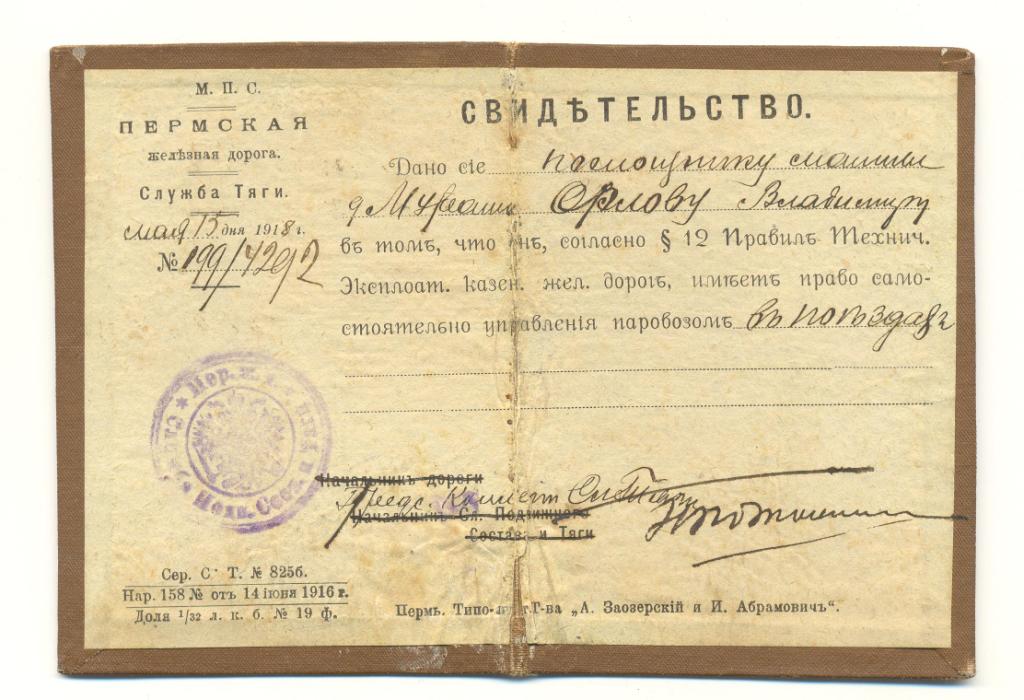 М. П. С.
ПЕРМСКАЯ
желѣзная дорога.
Служба Тяги.
мая 15 дня 1918 г.
№ 199/42912
СВИДѢТЕЛЬСТВО.
Дано сіе помощнику машини
Орлову Владимиру
въ томъ, что онъ, согласно § 12 Правилъ Технич.
Эксплоат. казен. жел. дорогъ, имѣетъ право само-
стоятельно управленія паровозомъ въ поѣздахъ
Пер. ж. д.
Начальникъ дороги
Предс. Комист
Начальникъ Сл. Подвижного
Состава и Тяги
Сер. С Т. № 825б.
Нар. 158 № отъ 14 іюня 1916 г.
Доля 1/32 л. к. б. № 19 ф.
Пермь. Типо-лит. Т-ва „А. Заозерскій и И. Абрамовичъ“.